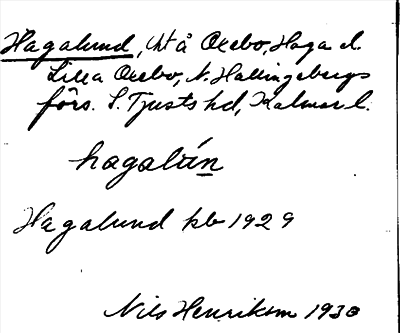 Hagalund, ht å Ocebo, Haga el.
Lilla Ocebo, N. Hallingebergs
förs. S. Tjusts hd, Kalmar l.
hagalún
Hagalund kb 1929
Nils Henrikson 1930